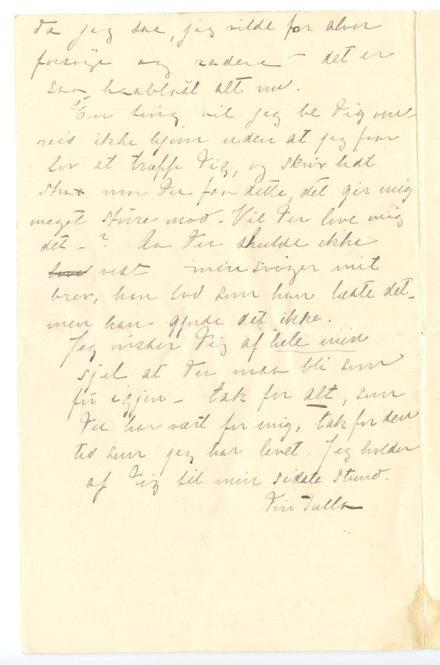 da jeg saa, jeg vilde for alvor
forsöge og radere – det er
saa haablöst alt nu.
En ting vil jeg be Dig om
reis ikke hjem uden at jeg faar
lov at træffe Dig, og skriv lidt
strax naar Du faar dette, det gir mig
meget större mod. Vil Du love mig
det – ? Aa Du skulde ikke
vist min svoger mit
brev, han lod som han læste det –
men han gjorde det ikke.
Jeg ønsker Dig af hele min
sjel at Du maa bli som
för igjen – tak for alt, som
Du har vært for mig, tak for den
tid som jeg har levet. Jeg holder
af Dig til min sidste stund.
Din Tulla